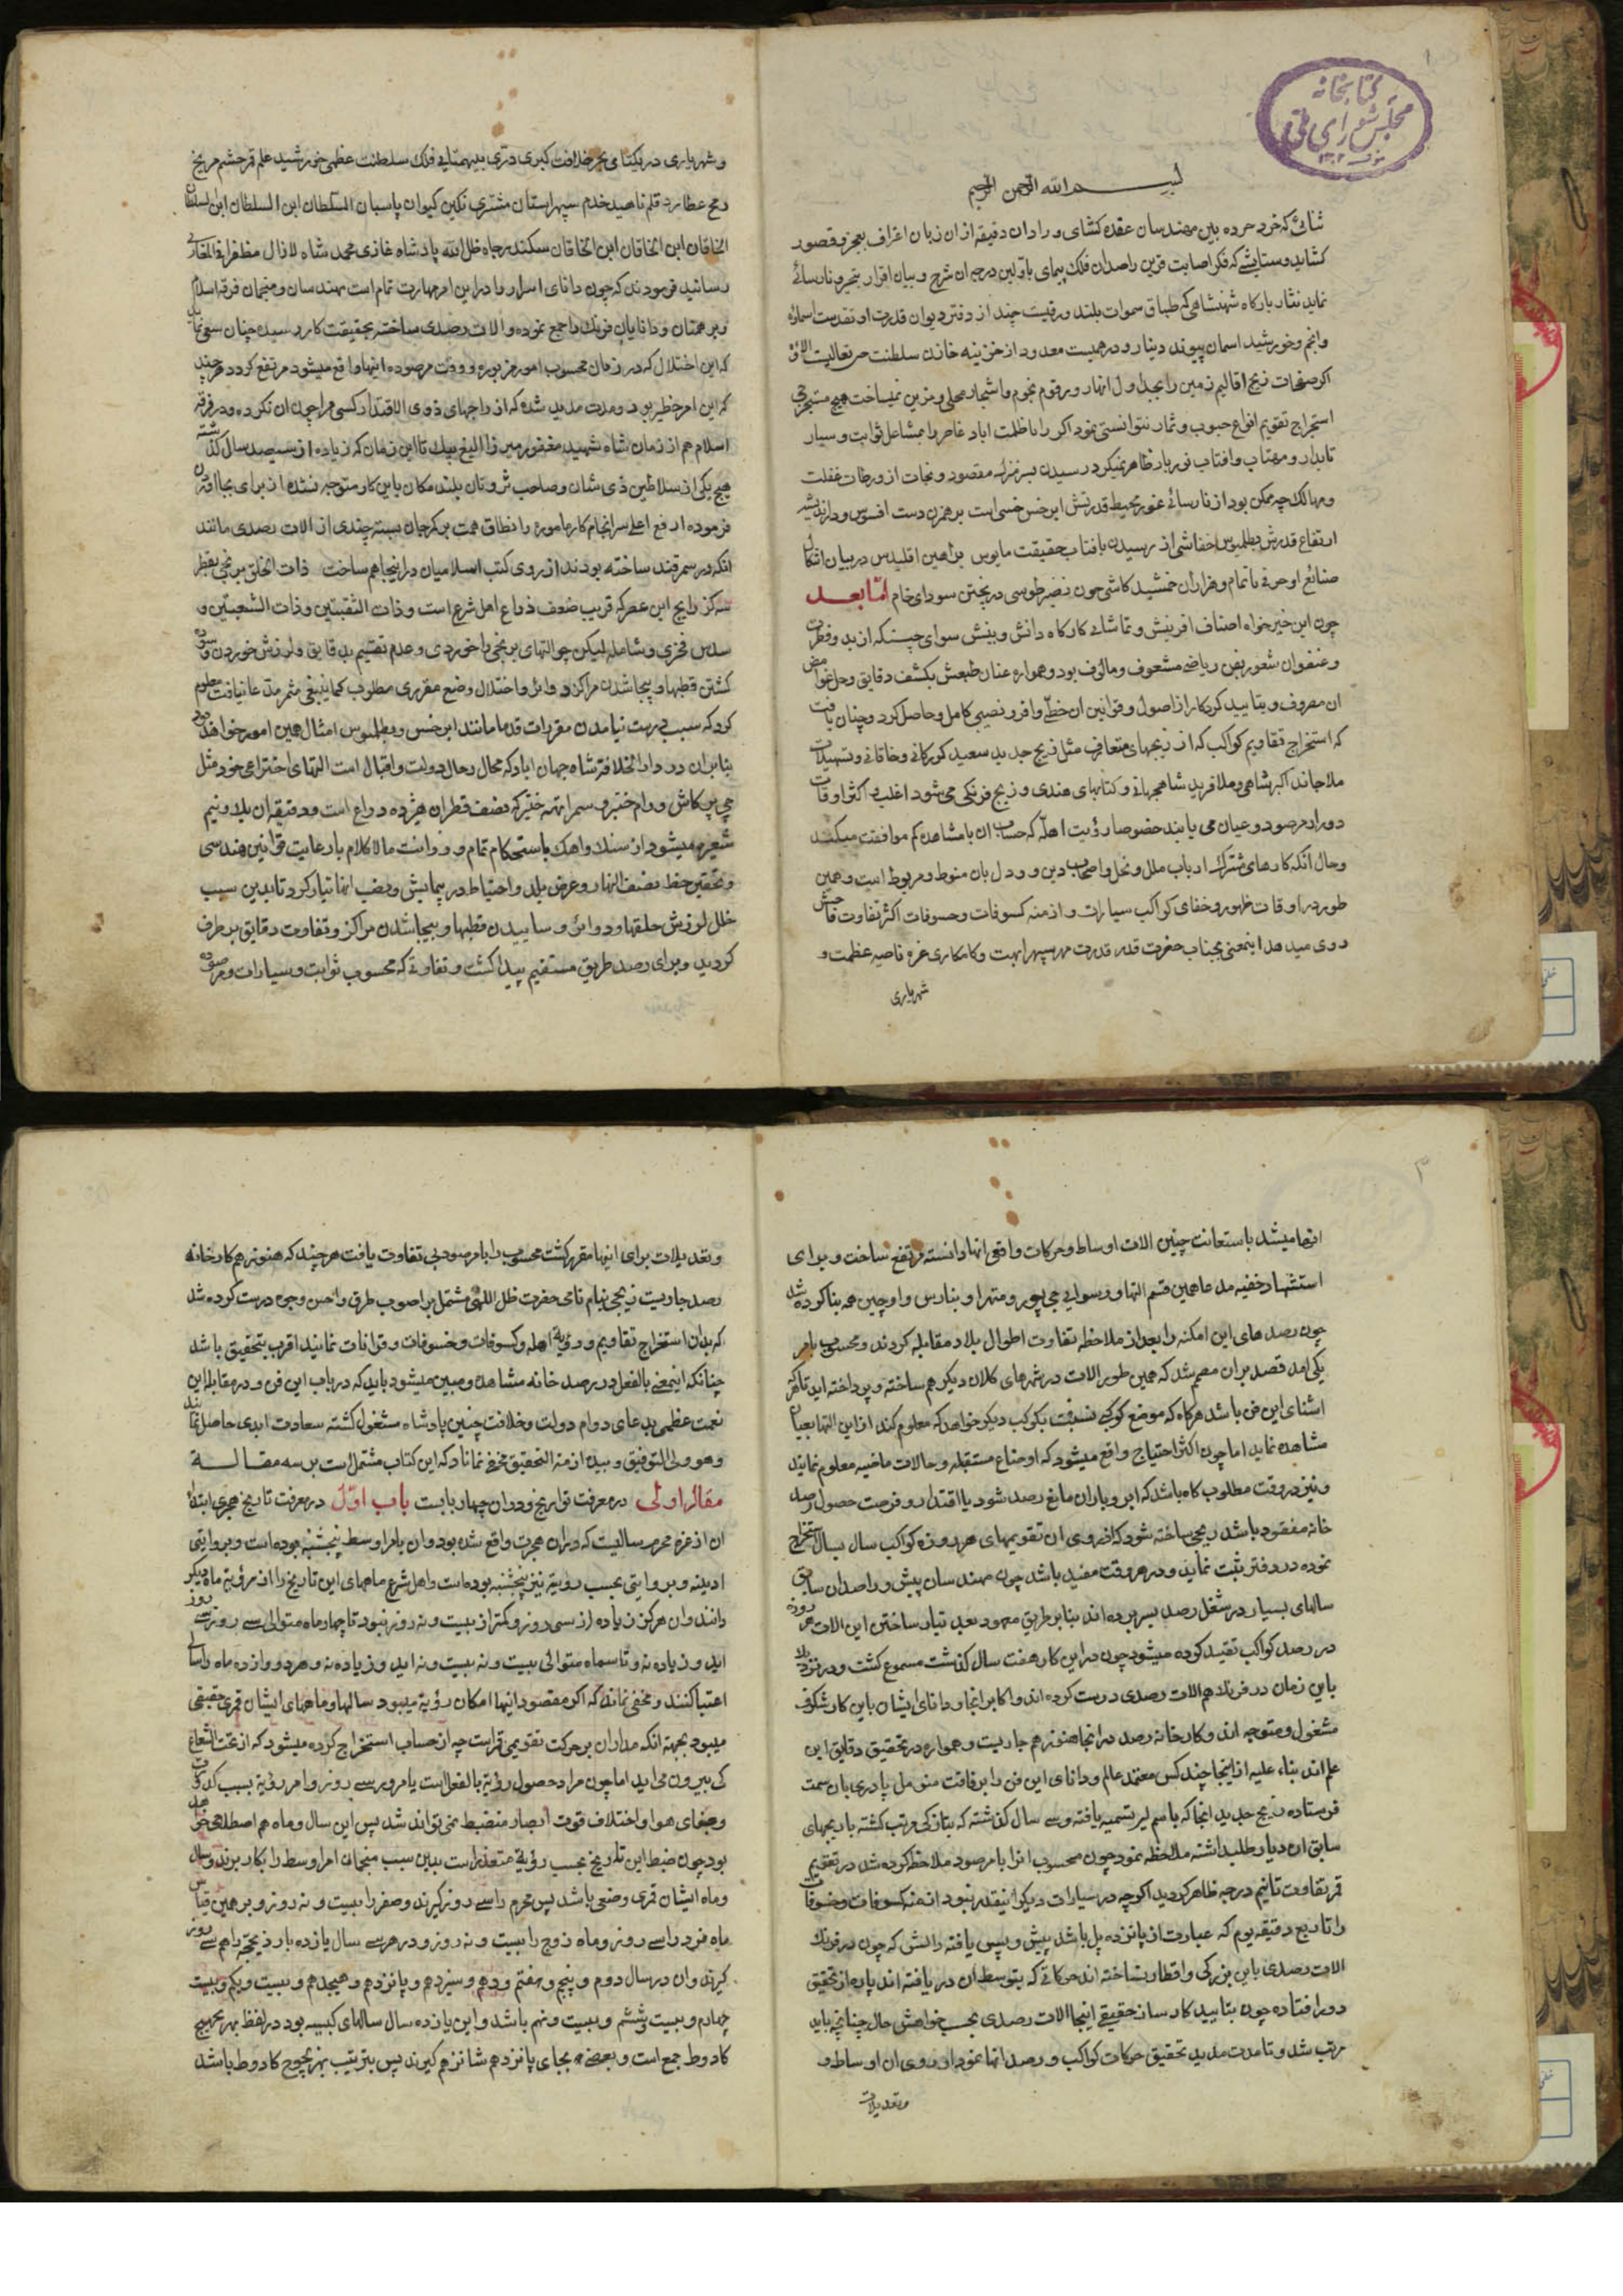 کتابخانه
مجلس شورای ملی
۱
بسم الله الرحمن الرحیم
ثنائی که خرد خرده بین مهندسان عقده کشای و رادان دقیقه از ان زبان اعتراف بعجز و قصور
کشاید و ستایشی که فکر اصابت قرین راصدان فلک پیمای باولین درجه ان شرح و بیان اقرار بعجز و نارسائی
نماید نثار بارکاه شهنشاهی که طباق سموات بلند ورقیست چند از دفتر دیوان قدرت او تقدست اسماؤه
وانجم و خورشید اسمان پیوند دینار و درهمیست معدود از خزینه خانه سلطنت من تعالیت الاؤه
اکر صفحات زیج اقالیم زمین را بجداول انهار و رقوم نجوم و اشجار محلی و مزین نمیساخت هیچ مستخرجی
استخراج تقویم انواع حبوب و ثمار نتوانستی نمود اکر راه ظلمت اباد عناصر را بمشاعل ثوابت و سیار
تابدار و مهتاب و افتاب نوربار ظاهر نمیکرد رسیدن بسرمنزل مقصود و نجات از ورطات غفلت
و مهالک چه ممکن بود از نارسائی غور محیط قدرتش ابرخس خسی است برهمزن دست افسوس و در اندیشه
ارتفاع قدرش بطلمیوس خفاشی از رسیدن بافتاب حقیقت مایوس براهین اقلیدس در بیان اشکال
صنائع او حرفی ناتمام و هزاران جمشید کاشی چون نصیر طوسی در پختن سودای خام امّا بعد
چون این خیرخواه اصناف افرینش و تماشائی کارکاه دانش و بینش سوای جیسنکه از بدو فطرت
و عنفوان شعور بفن ریاضی مشعوف و مالوف بود و همواره عنان طبعش بکشف دقایق و حل غوامض
ان مصروف و بتایید کردکار از اصول و قوانین ان حظّی وافر و نصیبی کامل حاصل کرد و چنان یافت
که استخراج تقاویم کواکب که از زیجهای متعارف مثل زیج جدید سعید کورکانی و خاقانی و تسهیلات
ملاچاند اکبرشاهی و ملا فرید شاهجهانی و کتابهای هندی و زیج فرنکی می شود اغلب و اکثر اوقات
دور از مرصود و عیان می یابند خصوصا رؤیت اهله که حساب ان با مشاهده کم موافقت میکند
و حال انکه کارهای مشترک ارباب ملل و نحل و اصحاب دین و دول بان منوط و مربوط است و همین
طور در اوقات ظهور و خفای کواکب سیارات و ازمنه کسوفات و خسوفات اکثر تفاوت فاحش
روی میدهد اینمعنی بجناب حضرت قدر قدرت مهر سپهر ابهت و کامکاری غره ناصیه عظمت و
شهریاری
و شهریاری در یکتای بحر خلافت کبری دری بیهمتای فلک سلطنت عظمی خورشید علم قمر حشم مریخ
رمح عطارد قلم ناهید خدم سپهر استان مشتری نکین کیوان پاسبان السلطان ابن السلطان ابن السلطان
الخاقان ابن الخاقان ابن الخاقان سکندر جاه ظل الله پادشاه غازی محمد شاه لازال مظفرا فی المغازی
رسانید فرمودند که چون دانای اسرار را درین امر مهارت تمام است مهندسان و منجمان فرقه اسلام
و برهمنان و دانایان فرنک را جمع نموده و الات رصدی ساخته بحقیقت کار رسیده چنان سعی نماید
که این اختلال که در زمان محسوب امور مزبوره و وقت مرصوده انها واقع میشود مرتفع کردد هرچند
که این امر خطیر بود و مدت مدید شده که از راجهای ذوی الاقتدار کسی پیراچون ان نکرده و در فرقه
اسلام هم از زمان شاه شهید مغفور میرزا الغ بیک تا این زمان که زیاده از سیصد سال کذشته
هیچ یکی از سلاطین ذی شان و صاحب ثروتان بلند مکان باین کار متوجه نشده از برای بجا اوردن
فرموده ارفع اعلی سرانجام کار مامور را نطاق همت بر کمر جان بسته چندی از الات رصدی مانند
انکه در سمرقند ساخته بودند از روی کتب اسلامیان در اینجا هم ساخت ذات الحلق برنجی بقطر
سه کز رایج این عصر که قریب ضعف ذراع اهل شرع است و ذات الثقبتین و ذات الشعبتین و
سدس فخری و شامله لیکن چون التهای برنجی را خوردی و عدم تقسیم بدقایق و لرزش خوردن و سوده
کشتن قطبها و بیجا شدن مراکز و دوائر و اختلال وضع مقرری مطلوب کما ینبغی مثمر مدعا نیافت معلوم
کرد که سبب درست نیامدن مقررات قدما مانند ابرخس و بطلمیوس امثال همین امور خواهد بود
بنابران در دارالخلافه شاه جهان اباد که محال رحال دولت و اقبال است التهای اختراعی خود مثل
جی پرکاش و رام جنتر و سمراته جنتر که نصف قطر ان هیژده ذراع است و دقیقه ان بقدر و نیم
شعیره میشود از سنک و اهک باستحکام تمام و ورزانت مالاکلام بارعایت قوانین هندسی
و تحقیق خط نصف النهار و عرض بلد و احتیاط در پیمایش و نصب انها تیار کرد تا بدین سبب
خلل لرزش حلقها و دوائر و ساییدن قطبها و بیجا شدن مراکز و تفاوت دقایق بر طرف
کردید و برای رصد طریق مستقیم پیدا کشت و تفاوتی که محسوب ثوابت و سیارات و مرصوده
۳
انها میشد باستعانت چنین الات اوساط و حرکات واقعی انها دانسته مرتفع ساخت و برای
استشهاد خفیه مدعا همین قسم التها در سوائی جی پور و متهرا و بنارس و اوجین هم بنا کرده شد
چون رصدهای این امکنه را بعد از ملاحظه تفاوت اطوال بلاد مقابله کردند و محسوب بامر
یکی امد قصد بران مصمم شد که همین طور الات در شهرهای کلان دیکر هم ساخته و پرداخته اید تا هرکه
اشنای این فن باشد هرکاه که موضع کوکبی نسبت بکوکب دیکر خواهد که معلوم کند از این التها بعیان
مشاهده نماید اما چون اکثر احتیاج واقع میشود که اوضاع مستقبله و حالات ماضیه معلوم نمایند
و نیز در وقت مطلوب کاه باشد که ابر و باران مانع رصد شود یا اقتدار و فرصت حصول رصد
خانه مفقود باشد زیجی ساخته شود که از روی ان تقویمهای هر روزه کواکب سال بسال استخراج
نموده در دفتر ثبت نماید و در هر وقت مفید باشد چون مهندسان پیش و راصدان سابق
سالهای بسیار در شغل رصد بسر برده اند بنابر طریق معهود بعد تیار ساختن این الات هر روزه
در رصد کواکب تقید کرده میشود چون درین کار هفت سال کذشت مسموع کشت و در نزدیک
باین زمان در فرنک هم الات رصدی درست کرده اند و اکابر انجا و دانای ایشان باین کار شکرف
مشغول و متوجه اند و کارخانه رصد در انجا هنوز هم جاریست و همواره در تحقیق دقایق این
علم اند بناء علیه از اینجا چند کس معتمد عالم و دانای این فن را برفاقت منویل پادری بان سمت
فرستاده زیج جدید انجا که باسم لیر تسمیه یافته و سی سال کذشته که بتازکی مرتب کشته با زیجهای
سابق ان دیار طلب داشته ملاحظه نمود چون محسوب انرا بامرصود ملاحظه کرده شد در تقویم
قمر تفاوت تا نیم درجه ظاهر کردید اکرچه در سیارات دیکر اینقدر نبود ازمنه کسوفات و خسوفات
را تا ربع دقیقه یوم که عبارت از پانزده پل باشد پیش و پس یافته دانش که چون در فرنک
الات رصدی باین بزرکی و اقطار نساخته اند حرکاتی که بتوسط ان دریافته اند پاره از تحقیق
دور افتاده چون بتایید کارساز حقیقی اینجا الات رصدی بحسب خواهش حال چنانچه باید
مرتب شد و تا مدت مدید تحقیق حرکات کواکب و رصد انها نمود از روی ان اوساط و
وتعدیلات
وتعدیلات برای اینها مقرر کشت محسوب را بامرصود بی تفاوت یافت هرچند که هنوز هم کارخانه
رصد جاریست زیجی بنام نامی حضرت ظل اللهی مشتمل بر اصوب طرق و احسن وجوه درست کرده شد
که بدان استخراج تقاویم و رؤیة اهله و کسوفات و خسوفات و قرانات نمایند اقرب بتحقیق باشد
چنانکه اینمعنی بالفعل در رصد خانه مشاهده و مبین میشود باید که در باب این فن و در مقابل این
نعمت عظمی بدعای دوام دولت و خلافت چنین پادشاه مشغول کشته سعادت ابدی حاصل نمایند
وهو ولی التوفیق و بیده ازمة التحقیق مخفی نماناد که این کتاب مشتمل است بر سه مقالـــه
مقاله اولی در معرفت تواریخ و دران چهار بابست باب اوّل در معرفت تاریخ هجری ابتداء
ان از غره محرم سالیست که دران هجرت واقع شده بود و ان بامر اوسط پنجشنبه بوده است و بروایتی
ادینه و بروایتی بحسب رویة نیز پنجشنبه بوده است و اهل شرع ماههای این تاریخ را از رؤیة ماه دیکر
دانند و ان هرکز زیاده از سی روز و کمتر از بیست و نه روز نبود تا چهار ماه متوالی سی روز سی روز
اید و زیاده نه و تا سه ماه متوالی بیست و نه بیست و نه اید و زیاده نه و هر دوازده ماه را سالی
اعتبار کنند و مخفی نماند که اکر مقصود اینها امکان رؤیة میبود سالها و ماههای ایشان قمری حقیقی
میبود بجهة انکه مدار ان بر حرکت تقویمی قمر است چه از حساب استخراج کرده میشود که از تحت الشعاع
کی بیرون می اید اما چون مراد حصول رؤیة بالفعل است یا مرور سی روز و امر رؤیة بسبب کدورت
وصفای هوا و اختلاف قوت ابصار منضبط نمی تواند شد پس این سال و ماه هم اصطلاحی خواهد
بود چون ضبط این تاریخ بحسب رؤیة متعذر است بدین سبب منجمان امر اوسط را بکار برند و سال
وماه ایشان قمری وضعی باشد پس محرم را سی روز کیرند و صفر را بیست و نه روز و بر همین قیاس
ماه فرد را سی روز و ماه زوج را بیست و نه روز و در هر سی سال یازده بار ذیحجه را هم سی روز
کیرند و ان در سال دوم و پنجم و هفتم و دهم و سیزدهم و پانزدهم و هیجدهم و بیست و یکم و بیست
چهارم و بیست و ششم و بیست و نهم باشد و این یازده سال سالهای کبیسه بود در لفظ بهزیجهیج
کادوط جمع است و بعضی بجای پانزدهم شانزدهم کیرند پس بترتیب بهزیجوح کادوط باشد